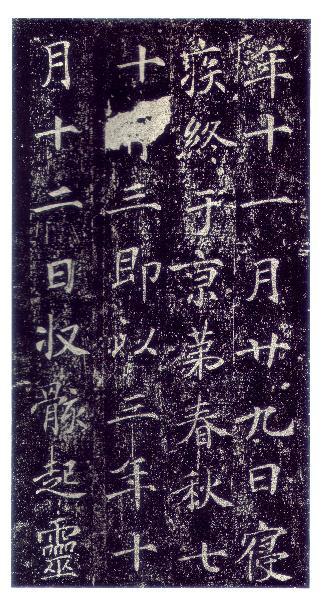 年十一月廿九日寢
疾終于京苐春秋七
十三即以三年十
月十二日収骸起靈